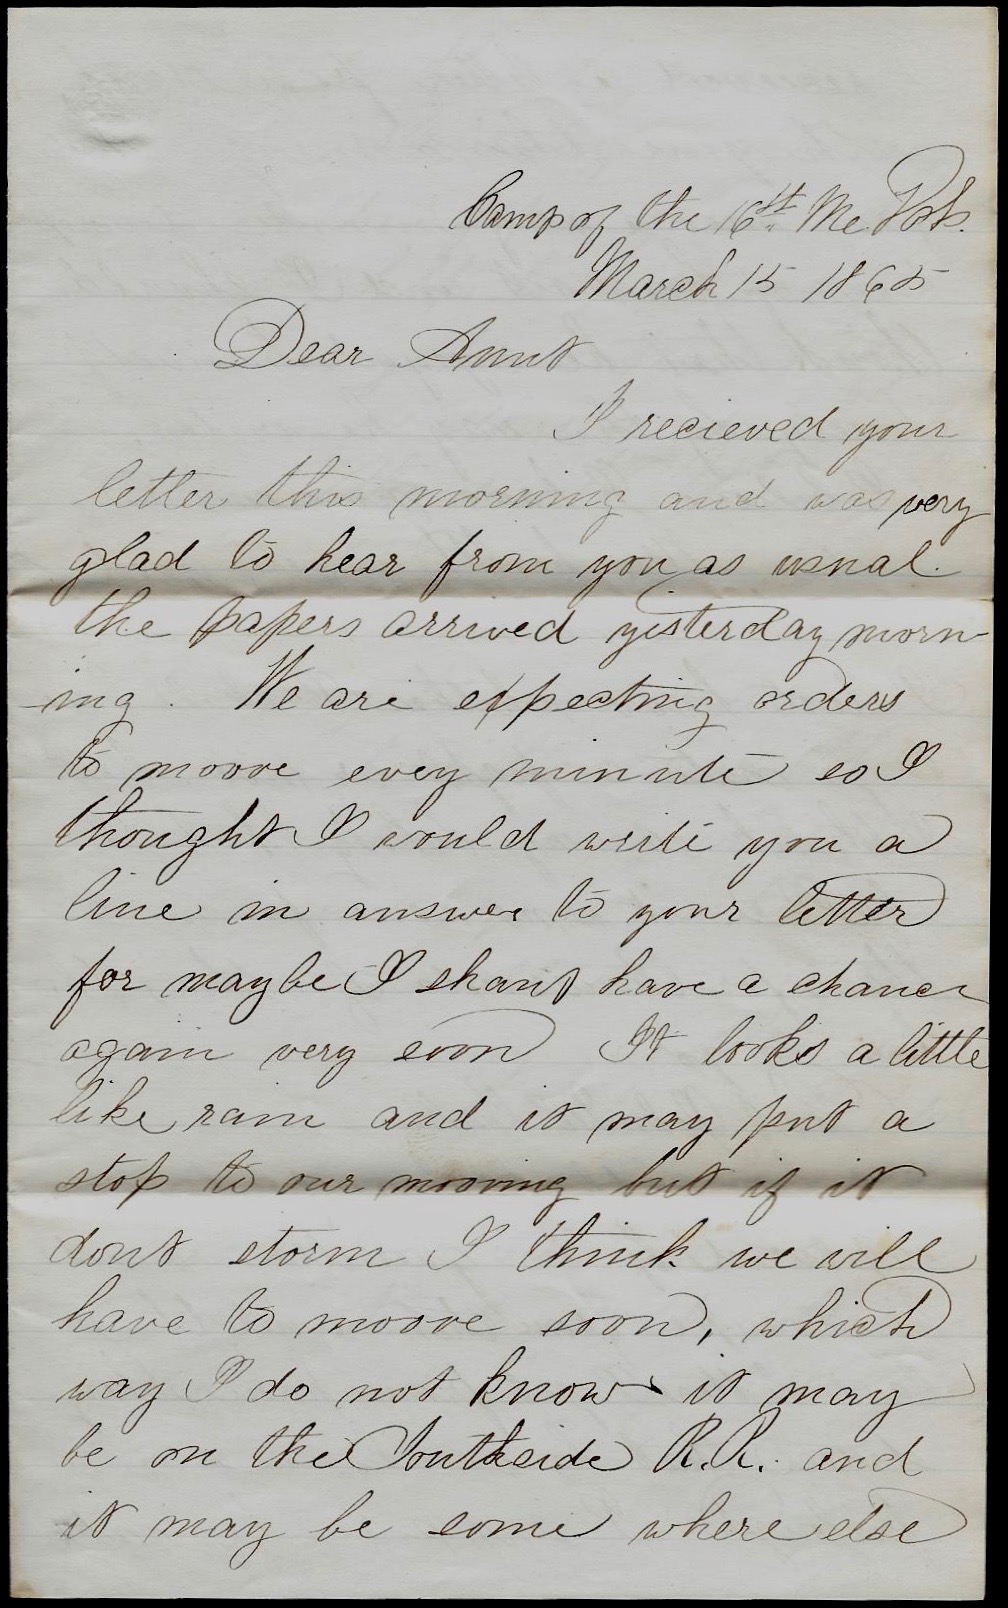 Camp of the 16th Me. Vols.
March 15 1865
Dear Aunt
I recieved your
letter this morning and was very
glad to hear from you as usual.
the papers arrived yisterday morn-
ing. We are expecting orders
to moove evey minute so I
thought I would write you a
line in answer to your letter
for maybe I shant have a chance
again very soon It looks a little
like rain and it may put a
stop to our mooving but if it
dont storm I think we will
have to moove soon, which
way I do not know it may
be on the Southside R.R. and
it may be some where else